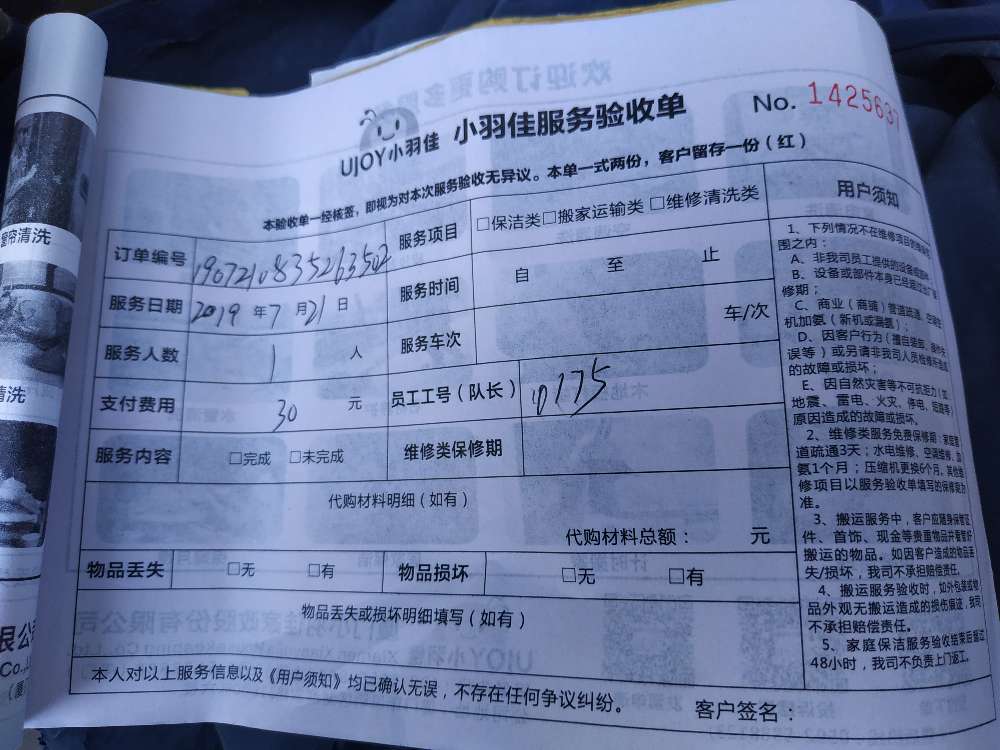 小羽佳服务验收单
No. 1425637
UJOY小羽佳
本验收单一经核签，即视为对本次服务验收无异议。本单一式两份，客户留存一份（红）
订单编号 1907210835263502
服务项目 □保洁类□搬家运输类 □维修清洗类
服务日期 2019 年 7 月 21 日
服务时间 自 至 止
服务人数 1 人
服务车次 车/次
支付费用 30 元
员工工号（队长）
服务内容 □完成 □未完成
维修类保修期
代购材料明细（如有）
代购材料总额： 元
物品丢失 □无 □有
物品损坏 □无 □有
物品丢失或损坏明细填写（如有）
本人对以上服务信息以及《用户须知》均已确认无误，不存在任何争议纠纷。
客户签名：
用户须知
1、下列情况不在维修项目的保修范
围之内：
A、非我司员工提供的设备或部件；
B、设备或部件本身已经超过出厂保
修期；
C、商业（商铺）管道疏通，空调整
机加氨（新机或漏氨）；
D、因客户行为（擅自装卸、操作失
误等）或另请非我司人员检修所造成
的故障或损坏；
E、因自然灾害等不可抗拒力（如
地震、雷电、火灾、停电、短路等）
原因造成的故障或损坏。
2、维修类服务免费保修期：家庭管
道疏通3天；水电维修、空调维修、加
氨1个月；压缩机更换6个月，其他维
修项目以服务验收单填写的保修期为
准。
3、搬运服务中，客户应随身保管证
件、首饰、现金等贵重物品并看管好
搬运的物品。如因客户造成的物品丢
失/损坏，我司不承担赔偿责任。
4、搬运服务验收时，如外包装或物
品外观无搬运造成的损伤痕迹，我司
不承担赔偿责任。
5、家庭保洁服务验收结束后超过
48小时，我司不负责上门返工。
窗帘清洗
清洗